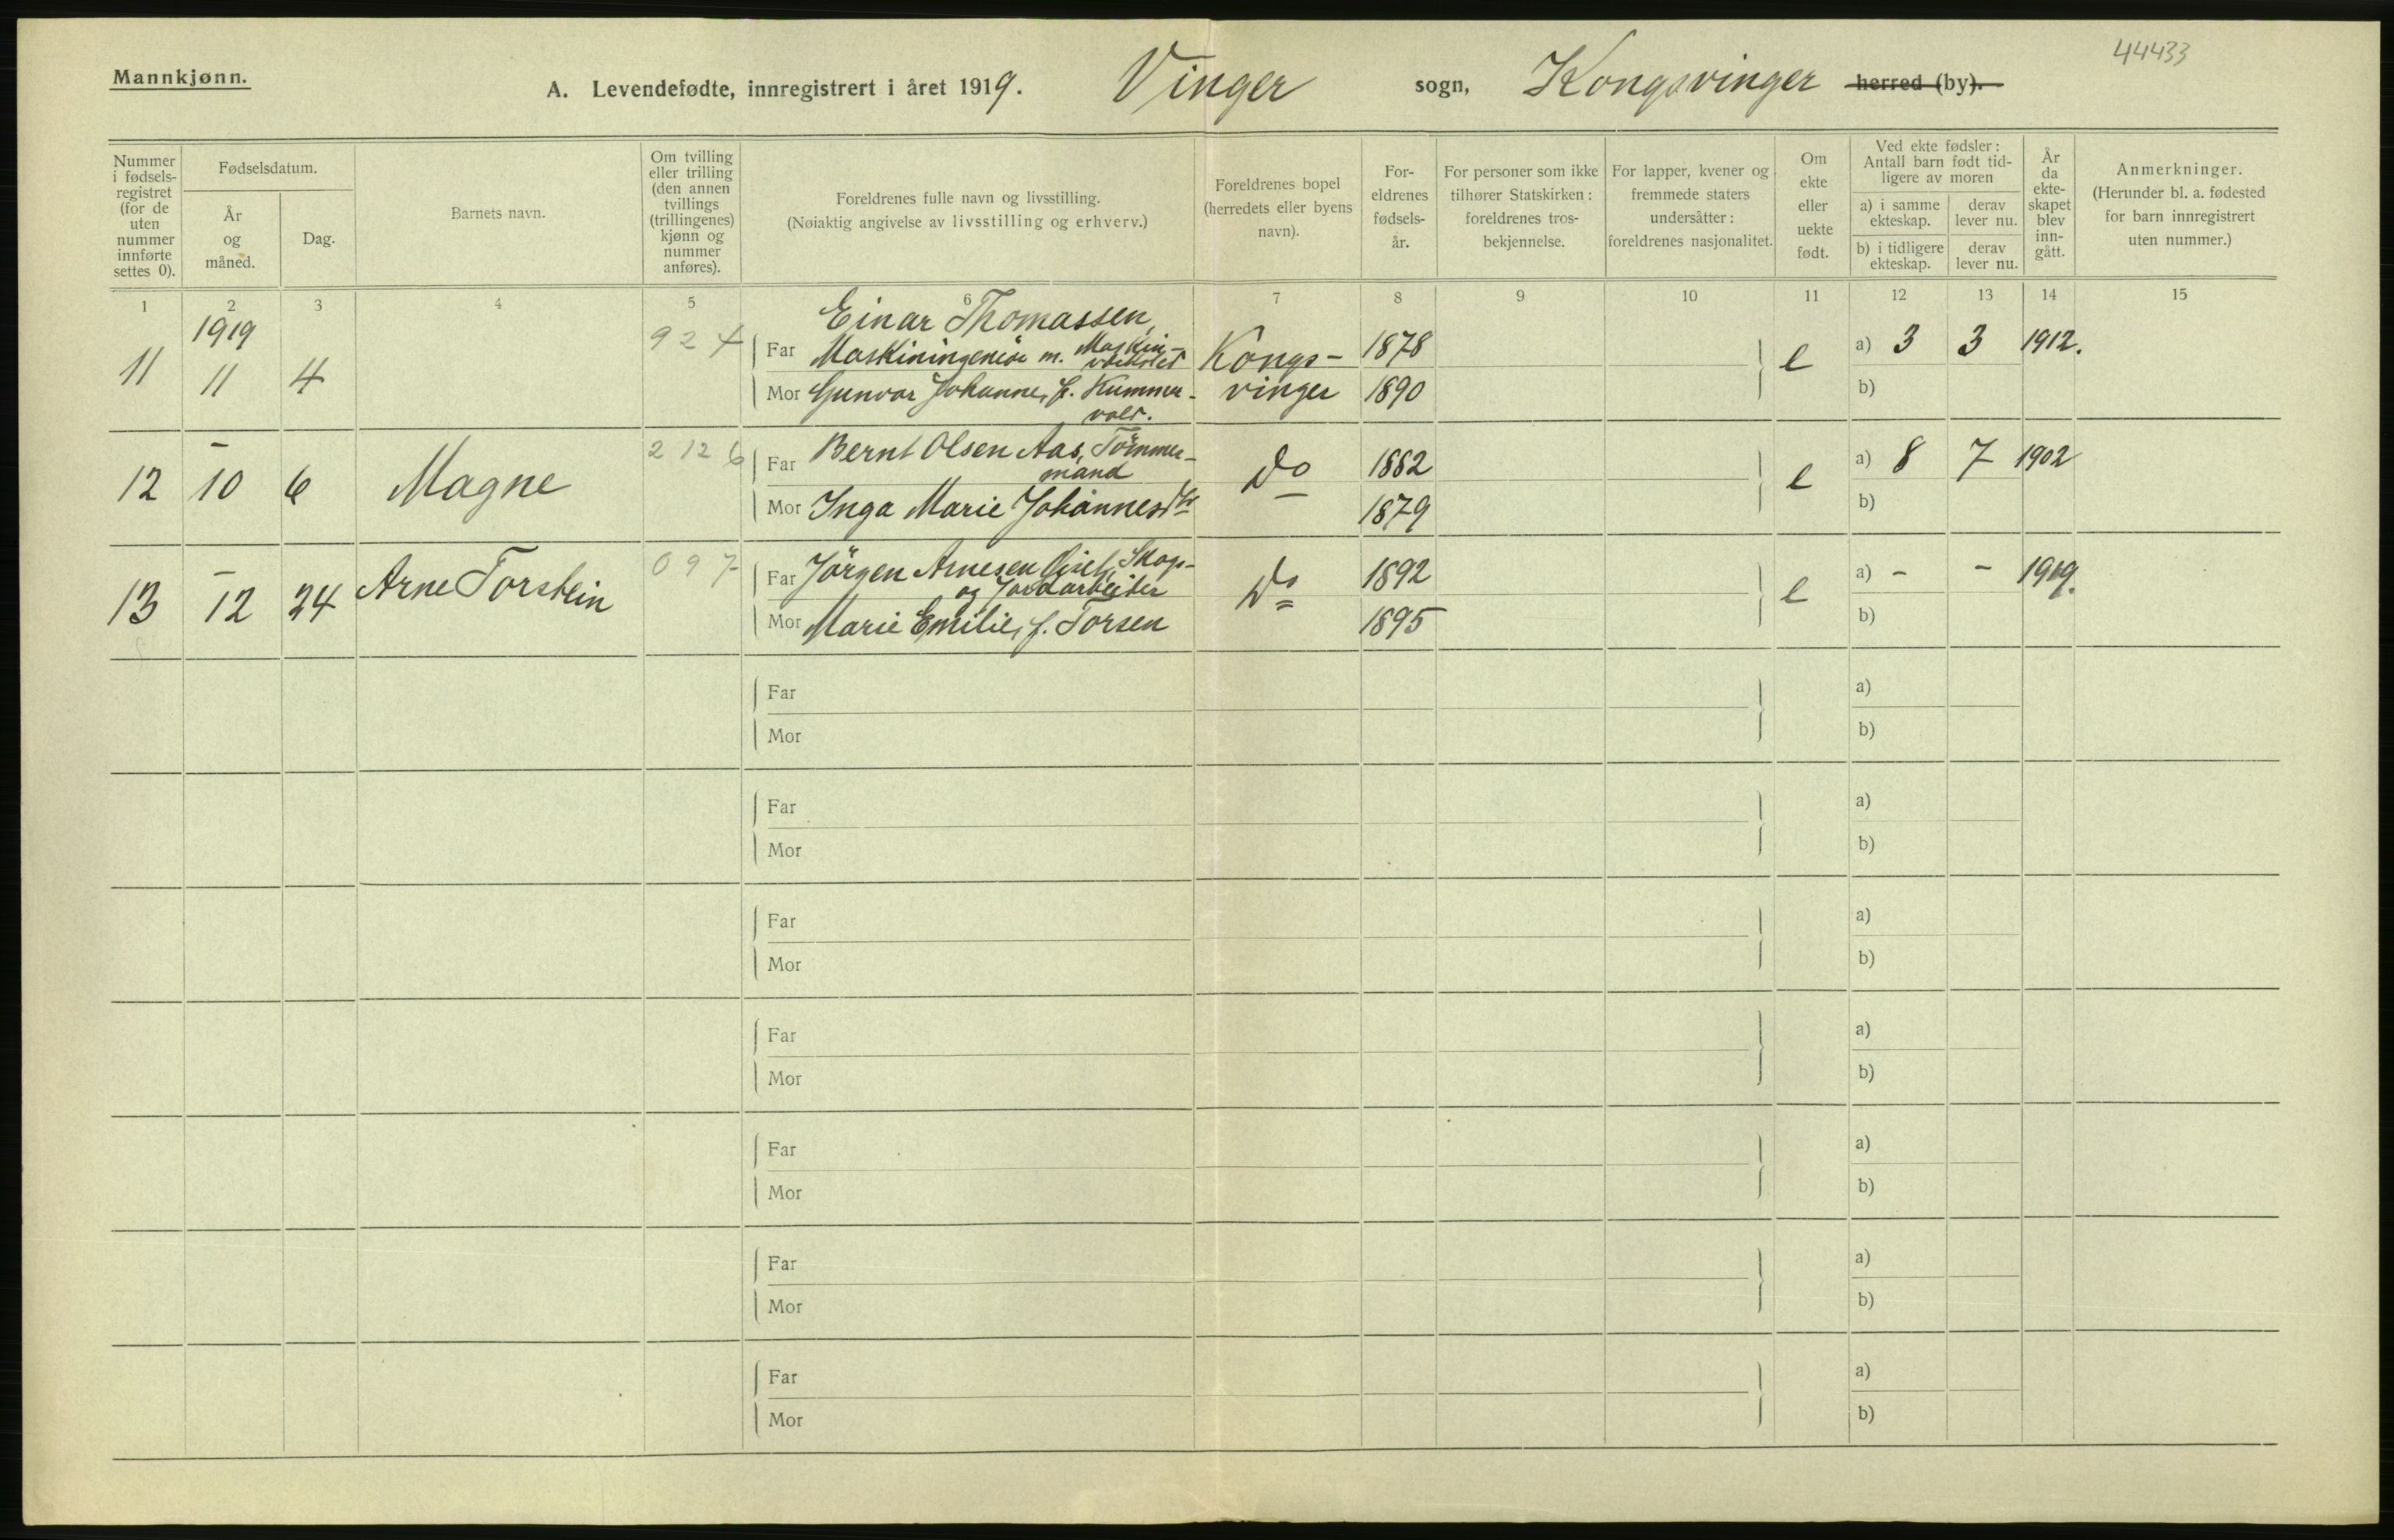 44433
Mannkjønn.
A. Levendefødte, innregistrert i året 1919. Vinger sogn, Kongsvinger herred (by).
Nummer i fødsels-registret (for de uten nummer innførte settes 0).
Fødselsdatum.
År og måned.
Dag.
Barnets navn.
Om tvilling eller trilling (den annen tvillings (trillingenes) kjønn og nummer anføres).
Foreldrenes fulle navn og livsstilling.
(Nøiaktig angivelse av livsstilling og erhverv.)
Foreldrenes bopel (herredets eller byens navn).
For-eldrenes fødsels-år.
For personer som ikke tilhører Statskirken: foreldrenes tros-bekjennelse.
For lapper, kvener og fremmede staters undersåtter: foreldrenes nasjonalitet.
Om ekte eller uekte født.
Ved ekte fødsler: Antall barn født tid-ligere av moren
a) i samme ekteskap.
derav lever nu.
b) i tidligere ekteskap.
derav lever nu.
År da ekte-skapet blev inn-gått.
Anmerkninger.
(Herunder bl. a. fødested for barn innregistrert uten nummer.)
1 2 3 4 5 6 7 8 9 10 11 12 13 14 15
1919
11 11 4
9 2 4
Einar Thomassen,
Far Maskiningeniör m. Maskin-
verksted
Kongs- 1878
Mor Gunvor Johanne, f. Kummer-
vold.
vinger 1890
e
a) 3 3 1912.
b)
12 – 10 6 Magne
2 12 6
Far Bernt Olsen Aas, Tömmer-
mand
Do 1882
Mor Inga Marie Johannesdtr
1879
e
a) 8 7 1902
b)
13 – 12 24 Arne Torstein
0 9 7
Far Jörgen Arnesen Skog-
og Jordarbeider
Do 1892
Mor Marie Emilie, f. Torsen
1895
e
a) – – 1919.
b)
Far a)
Mor b)
Far a)
Mor b)
Far a)
Mor b)
Far a)
Mor b)
Far a)
Mor b)
Far a)
Mor b)
Far a)
Mor b)